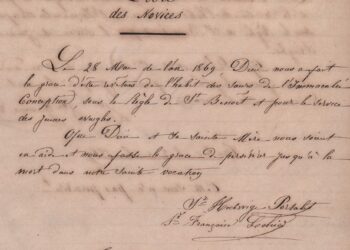 des Novices
Le 28 Mai de l'an 1869, Dieu nous a fait
la grace d'être revêtues de l'habit des sœurs de l'Immaculée
Conception, sous la Règle de St Benoit et pour le service
des jeunes aveugles.
Que Dieu et Sa Sainte Mère nous soient
en aide et nous fasse la grace de persévérer jusqu'à la
mort dans notre sainte vocation
Sr Hedwige
Sr Françoise